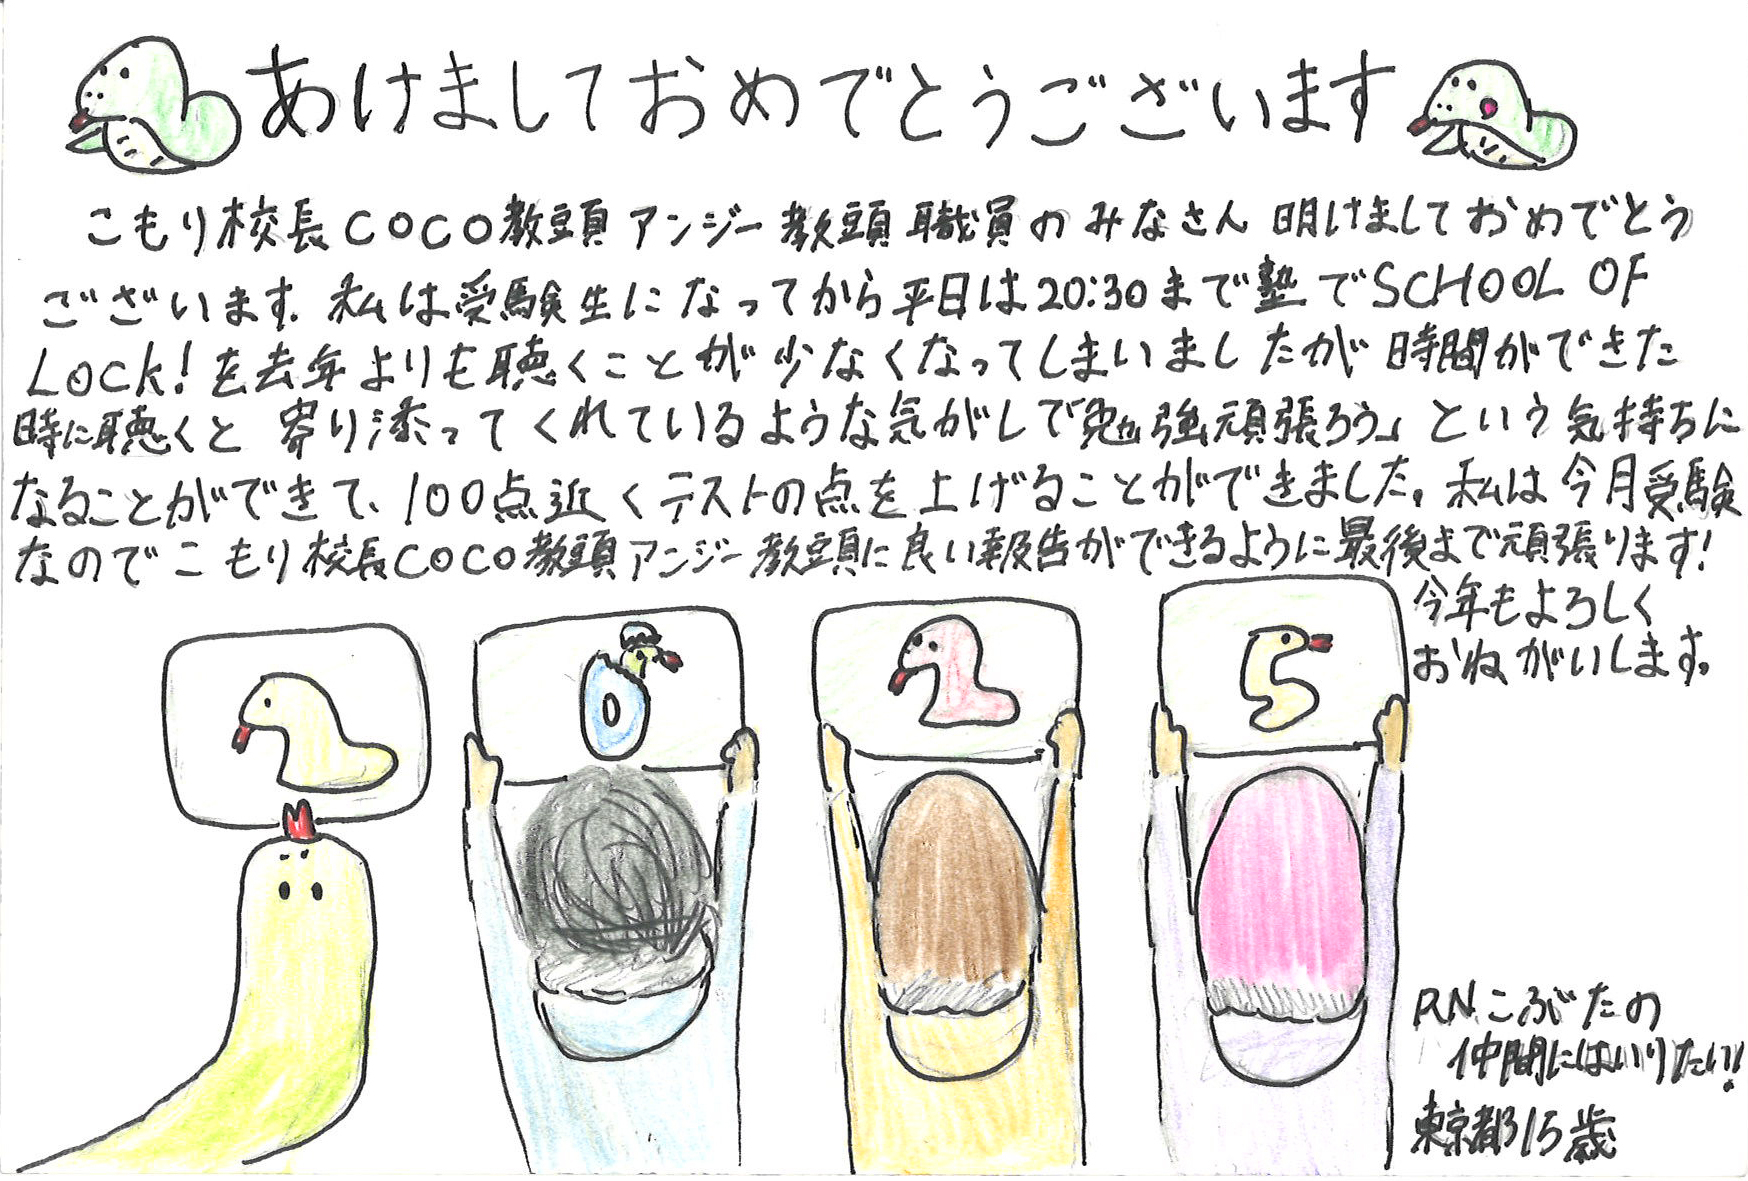 あけましておめでとうございます
こもり校長COCO教頭アンジー教頭職員のみなさん 明けましておめでとう
ございます。私は受験生になってから平日は20:30まで塾でSCHOOL OF
LOCK!を去年よりも聴くことが少なくなってしまいましたが時間ができた
時に聴くと寄り添ってくれているような気がして「勉強頑張ろう」という気持ちに
なることができて、100点近くテストの点を上げることができました。私は今月受験
なのでこもり校長COCO教頭アンジー教頭に良い報告ができるように最後まで頑張ります!
今年もよろしく
おねがいします。
2025
RN.こぶたの
仲間にはいりたい!!
東京都15歳